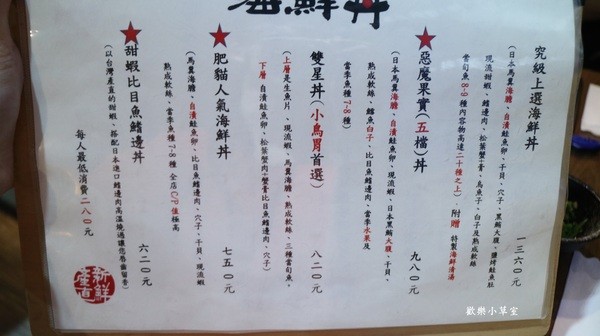 海鮮丼
究級上選海鮮丼 一三六〇元
(日本馬糞海膽、自漬鮭魚卵、干貝、穴子、黑鮪大腹、鹽烤鮭魚肚
現流甜蝦、鰭邊肉、松葉蟹膏、烏魚子、白子及熟成軟絲
當旬魚8-9種內容物高達二十種之上)、附贈 特製海鮮清湯
★惡魔果實(五檔)丼 九八〇元
(日本馬糞海膽、自漬鮭魚卵、現流蝦、日本黑鮪大腹、干貝、
熟成軟絲、鱈魚白子、比目魚鰭邊肉、當季水果及
當季魚種7-8種)
雙星丼(小鳥胃首選) 八二〇元
(上層是生魚片、現流蝦、馬糞海膽、熟成軟絲、三種當旬魚、
下層 自漬鮭魚卵、松葉蟹肉+蟹膏比目魚鰭邊肉、穴子)
★肥貓人氣海鮮丼 七五〇元
(馬糞海膽、自漬鮭魚卵、比目魚鰭邊肉、穴子、干貝、現流蝦
熟成軟絲、當季魚種7-8種 全店C/P值極高
★甜蝦比目魚鰭邊丼 六二〇元
(以台灣產直的甜蝦、搭配日本進口鰭邊肉高溫燒過讓您唇齒留香)
每人最低消費二八〇元
新鮮
產直
歡樂小草室